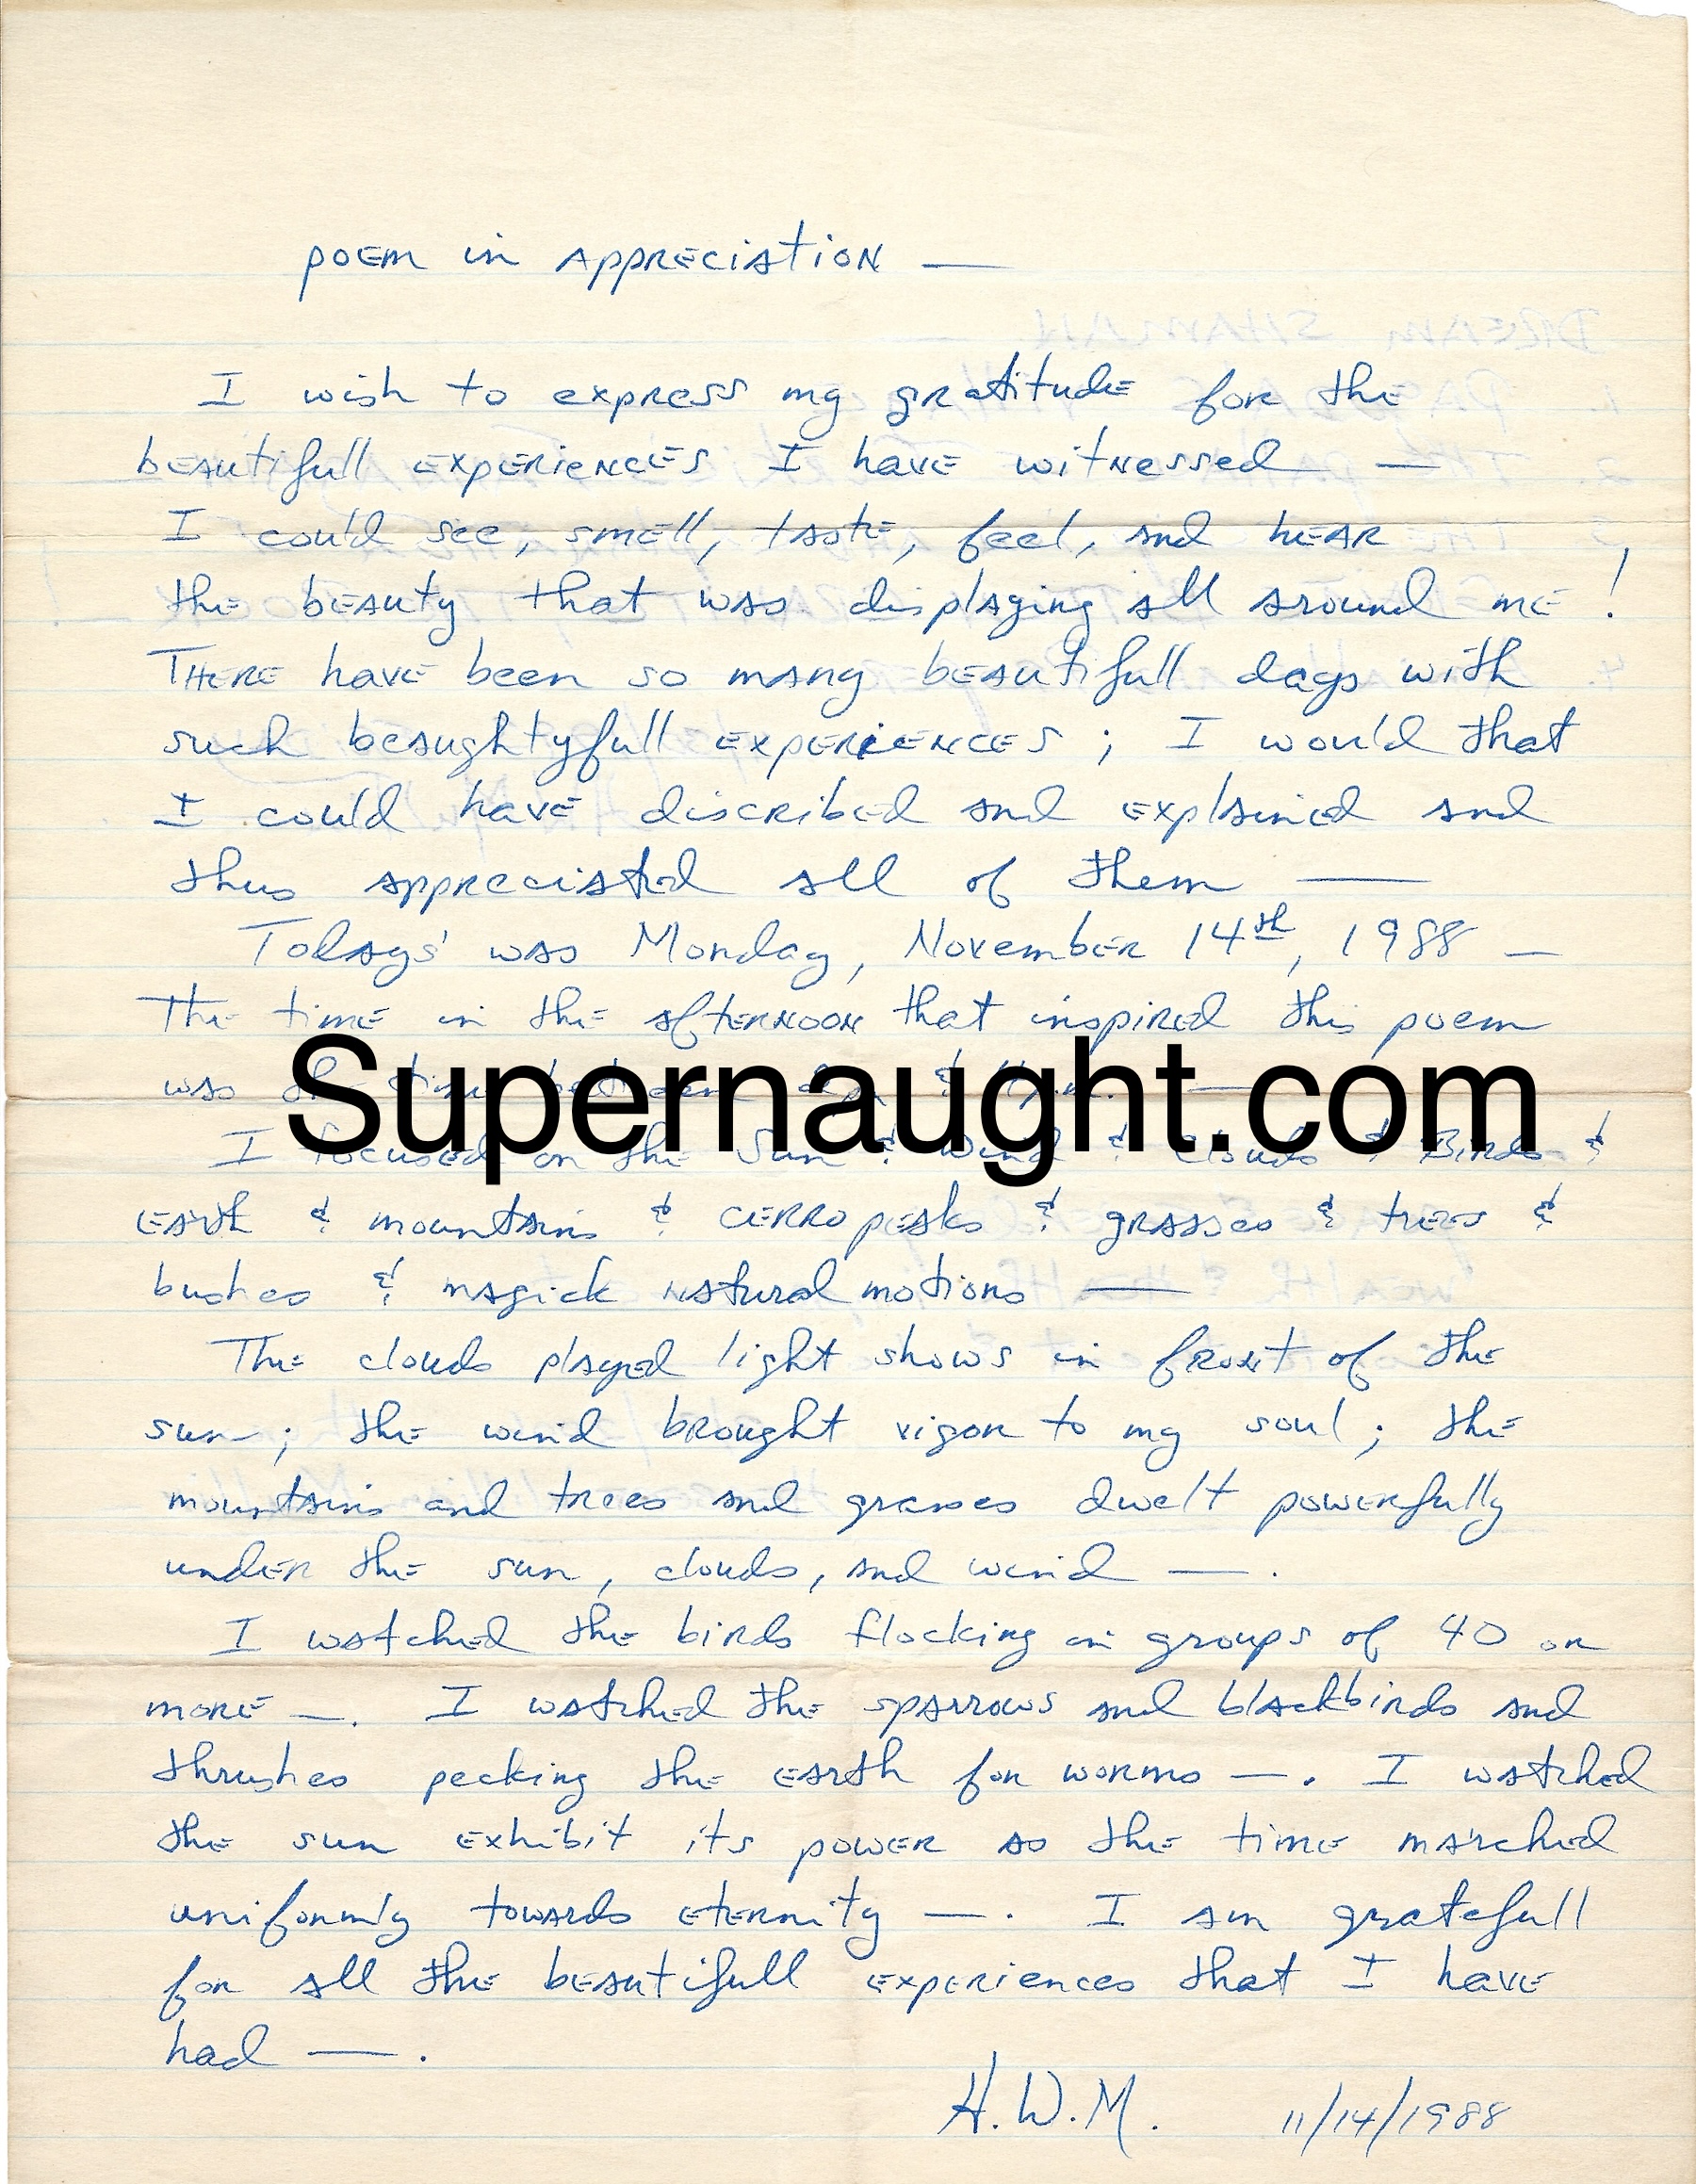 POEM in APPRECIATION —
I wish to express my gratitude for the
beautifull experiences I have witnessed —
I could see, smell, taste, feel, and hear
the beauty that was displaying all around me !
There have been so many beautifull days with
such beaughtyfull experiences ; I would that
I could have discribed and explained and
thus appreciated all of them —
Todays' was Monday, November 14th, 1988 —
The time in the afternoon that inspired this poem
was the time between &
Supernaught.com
I focused on the Sun & Wind & Clouds & Birds &
earth & mountains & cerro peaks & grasses & trees &
bushes & magick natural motions —
The clouds played light shows in front of the
sun ; the wind brought vigor to my soul ; the
mountains and trees and grasses dwelt powerfully
under the sun, clouds, and wind — .
I watched the birds flocking in groups of 40 or
more — . I watched the sparrows and blackbirds and
thrushes pecking the earth for worms — . I watched
the sun exhibit its power as the time marched
uniformly towards eternity — . I am gratefull
for all the beautifull experiences that I have
had — .
H.W.M. 11/14/1988